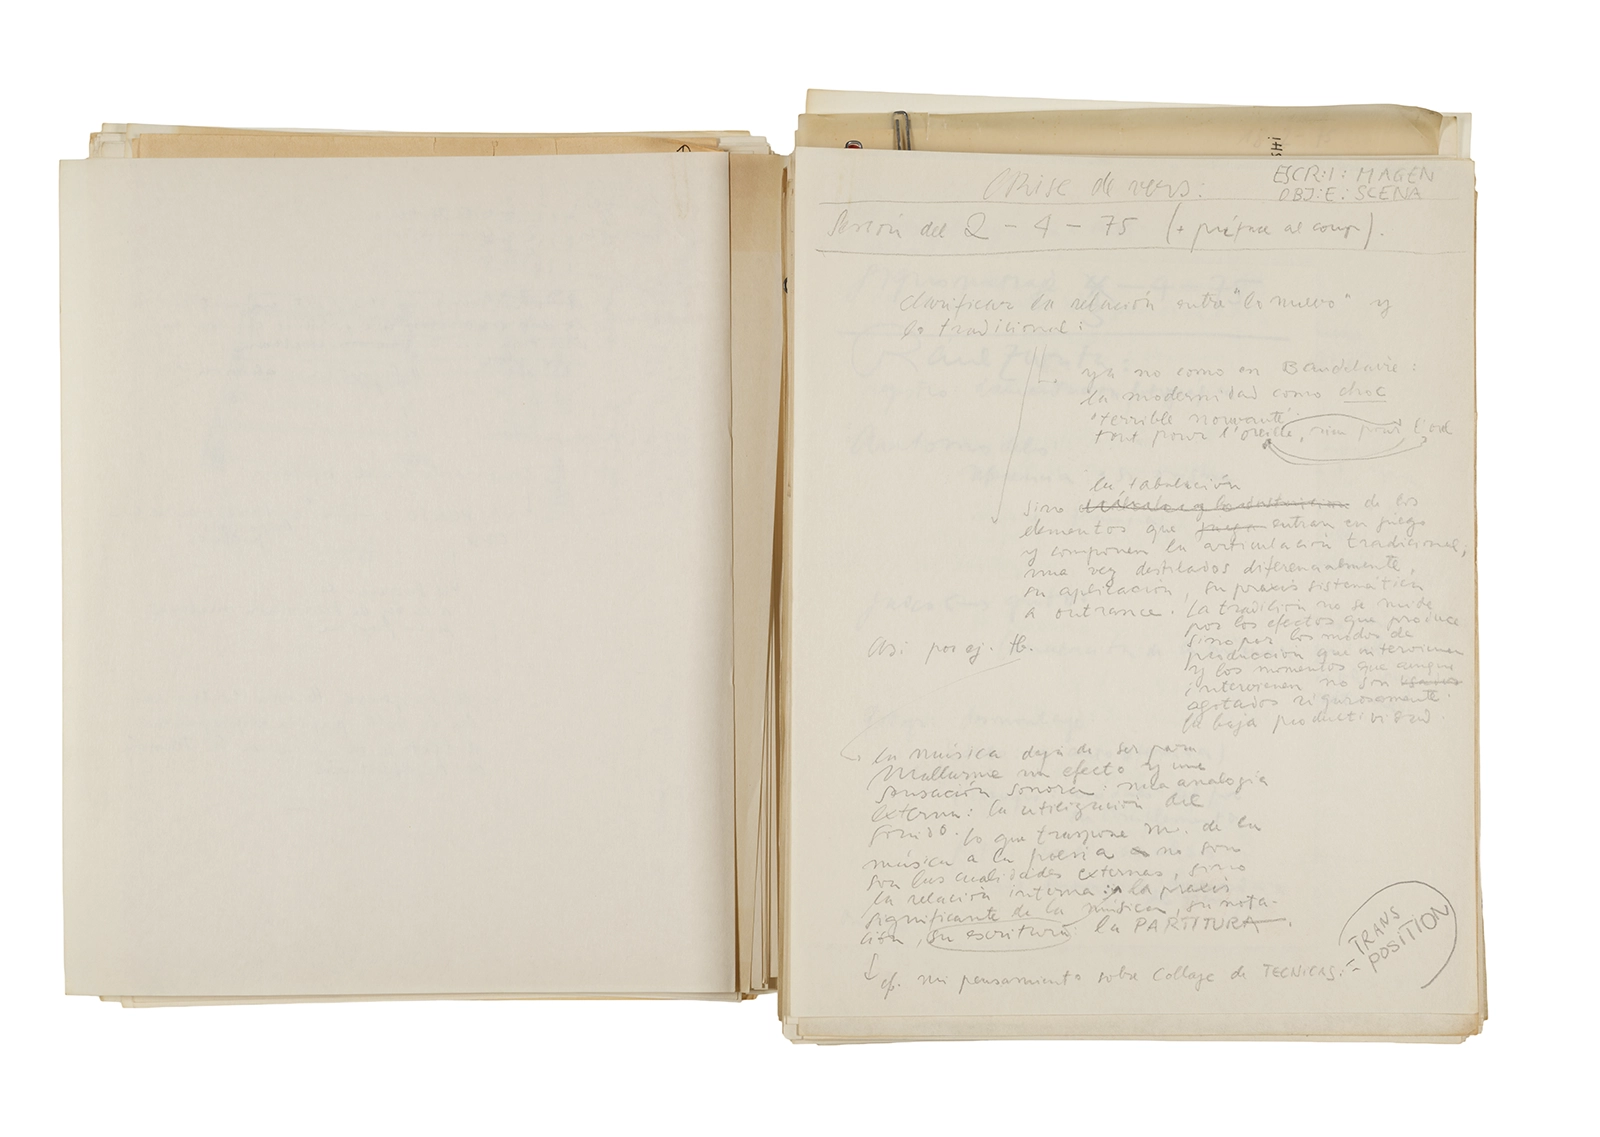 SHI
ESCR:I: MAGEN
OBJ:E: SCENA
CRise de vers:
Sesión del 2 - 4 - 75 (+ préface al coup).
Clarificar la relación entre "lo nuevo" y
lo tradicional:
ya no como en Baudelaire:
la modernidad como choc
"terrible nouveauté"
tout pour l'oreille, rien pour l'oeil
la tabulación
sino de los
elementos que juega entran en juego
y componen la articulación tradicional;
una vez destilados diferencialmente,
su aplicación, su praxis sistemática
a outrance. La tradición no se mide
por los efectos que produce
sino por los modos de
producción que intervienen
y los momentos que aunque
intervienen no son
agotados rigurosamente.
la baja productividad.
Así por ej. tb.
la música deja de ser para
Mallarmé un efecto y una
sensación sonora: una analogía
externa: la utilización del
sonido. lo que traspone m. de la
música a la poesía no son
son las cualidades externas, sino
la relación interna: la praxis
significante de la música, su nota-
ción, su escritura: la PARTITURA.
cf. mi pensamiento sobre Collage de TECNICAS:
TRANS
POSITION